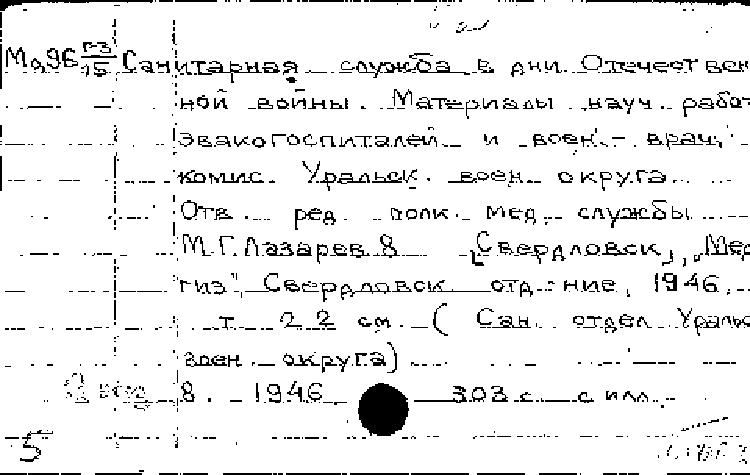 Мд96 гз/15 Санитарная служба в дни Отечествен
ной войны. Материалы науч. работ
эвакогоспиталей и воен.- врач.
комис. Уральск. воен. округа.
Отв. ред. полк. мед. службы
М.Г. Лазарев. 8 [Свердловск], „Мед
гиз", Свердловск. отд-ние, 1946.
т. 22 см. (Сан. отдел Уральск
воен. округа)
8. 1946 303 с. с илл.
5